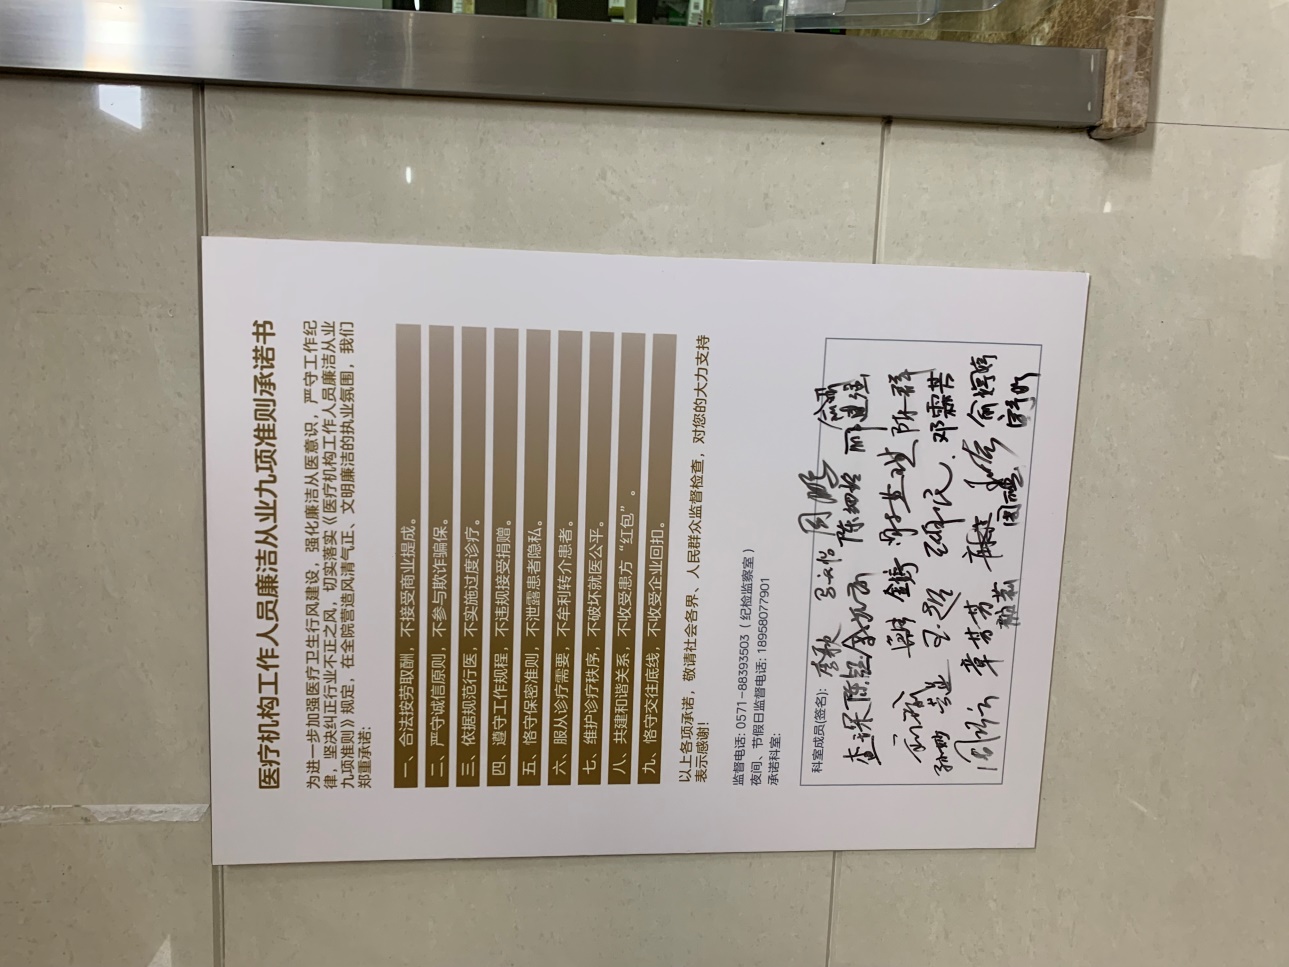 医疗机构工作人员廉洁从业九项准则承诺书
为进一步加强医疗卫生行风建设，强化廉洁从医意识，严守工作纪
律，坚决纠正行业不正之风，切实落实《医疗机构工作人员廉洁从业
九项准则》规定，在全院营造风清气正、文明廉洁的执业氛围，我们
郑重承诺：
一、合法按劳取酬，不接受商业提成。
二、严守诚信原则，不参与欺诈骗保。
三、依据规范行医，不实施过度诊疗。
四、遵守工作规程，不违规接受捐赠。
五、恪守保密准则，不泄露患者隐私。
六、服从诊疗需要，不牟利转介患者。
七、维护诊疗秩序，不破坏就医公平。
八、共建和谐关系，不收受患方“红包”。
九、恪守交往底线，不收受企业回扣。
以上各项承诺，敬请社会各界、人民群众监督检查，对您的大力支持
表示感谢！
监督电话：0571-88393503（纪检监察室）
夜间、节假日监督电话：18958077901
承诺科室：
科室成员(签名)：李秋 周鹏
陈群
邓霖其
章芳芳